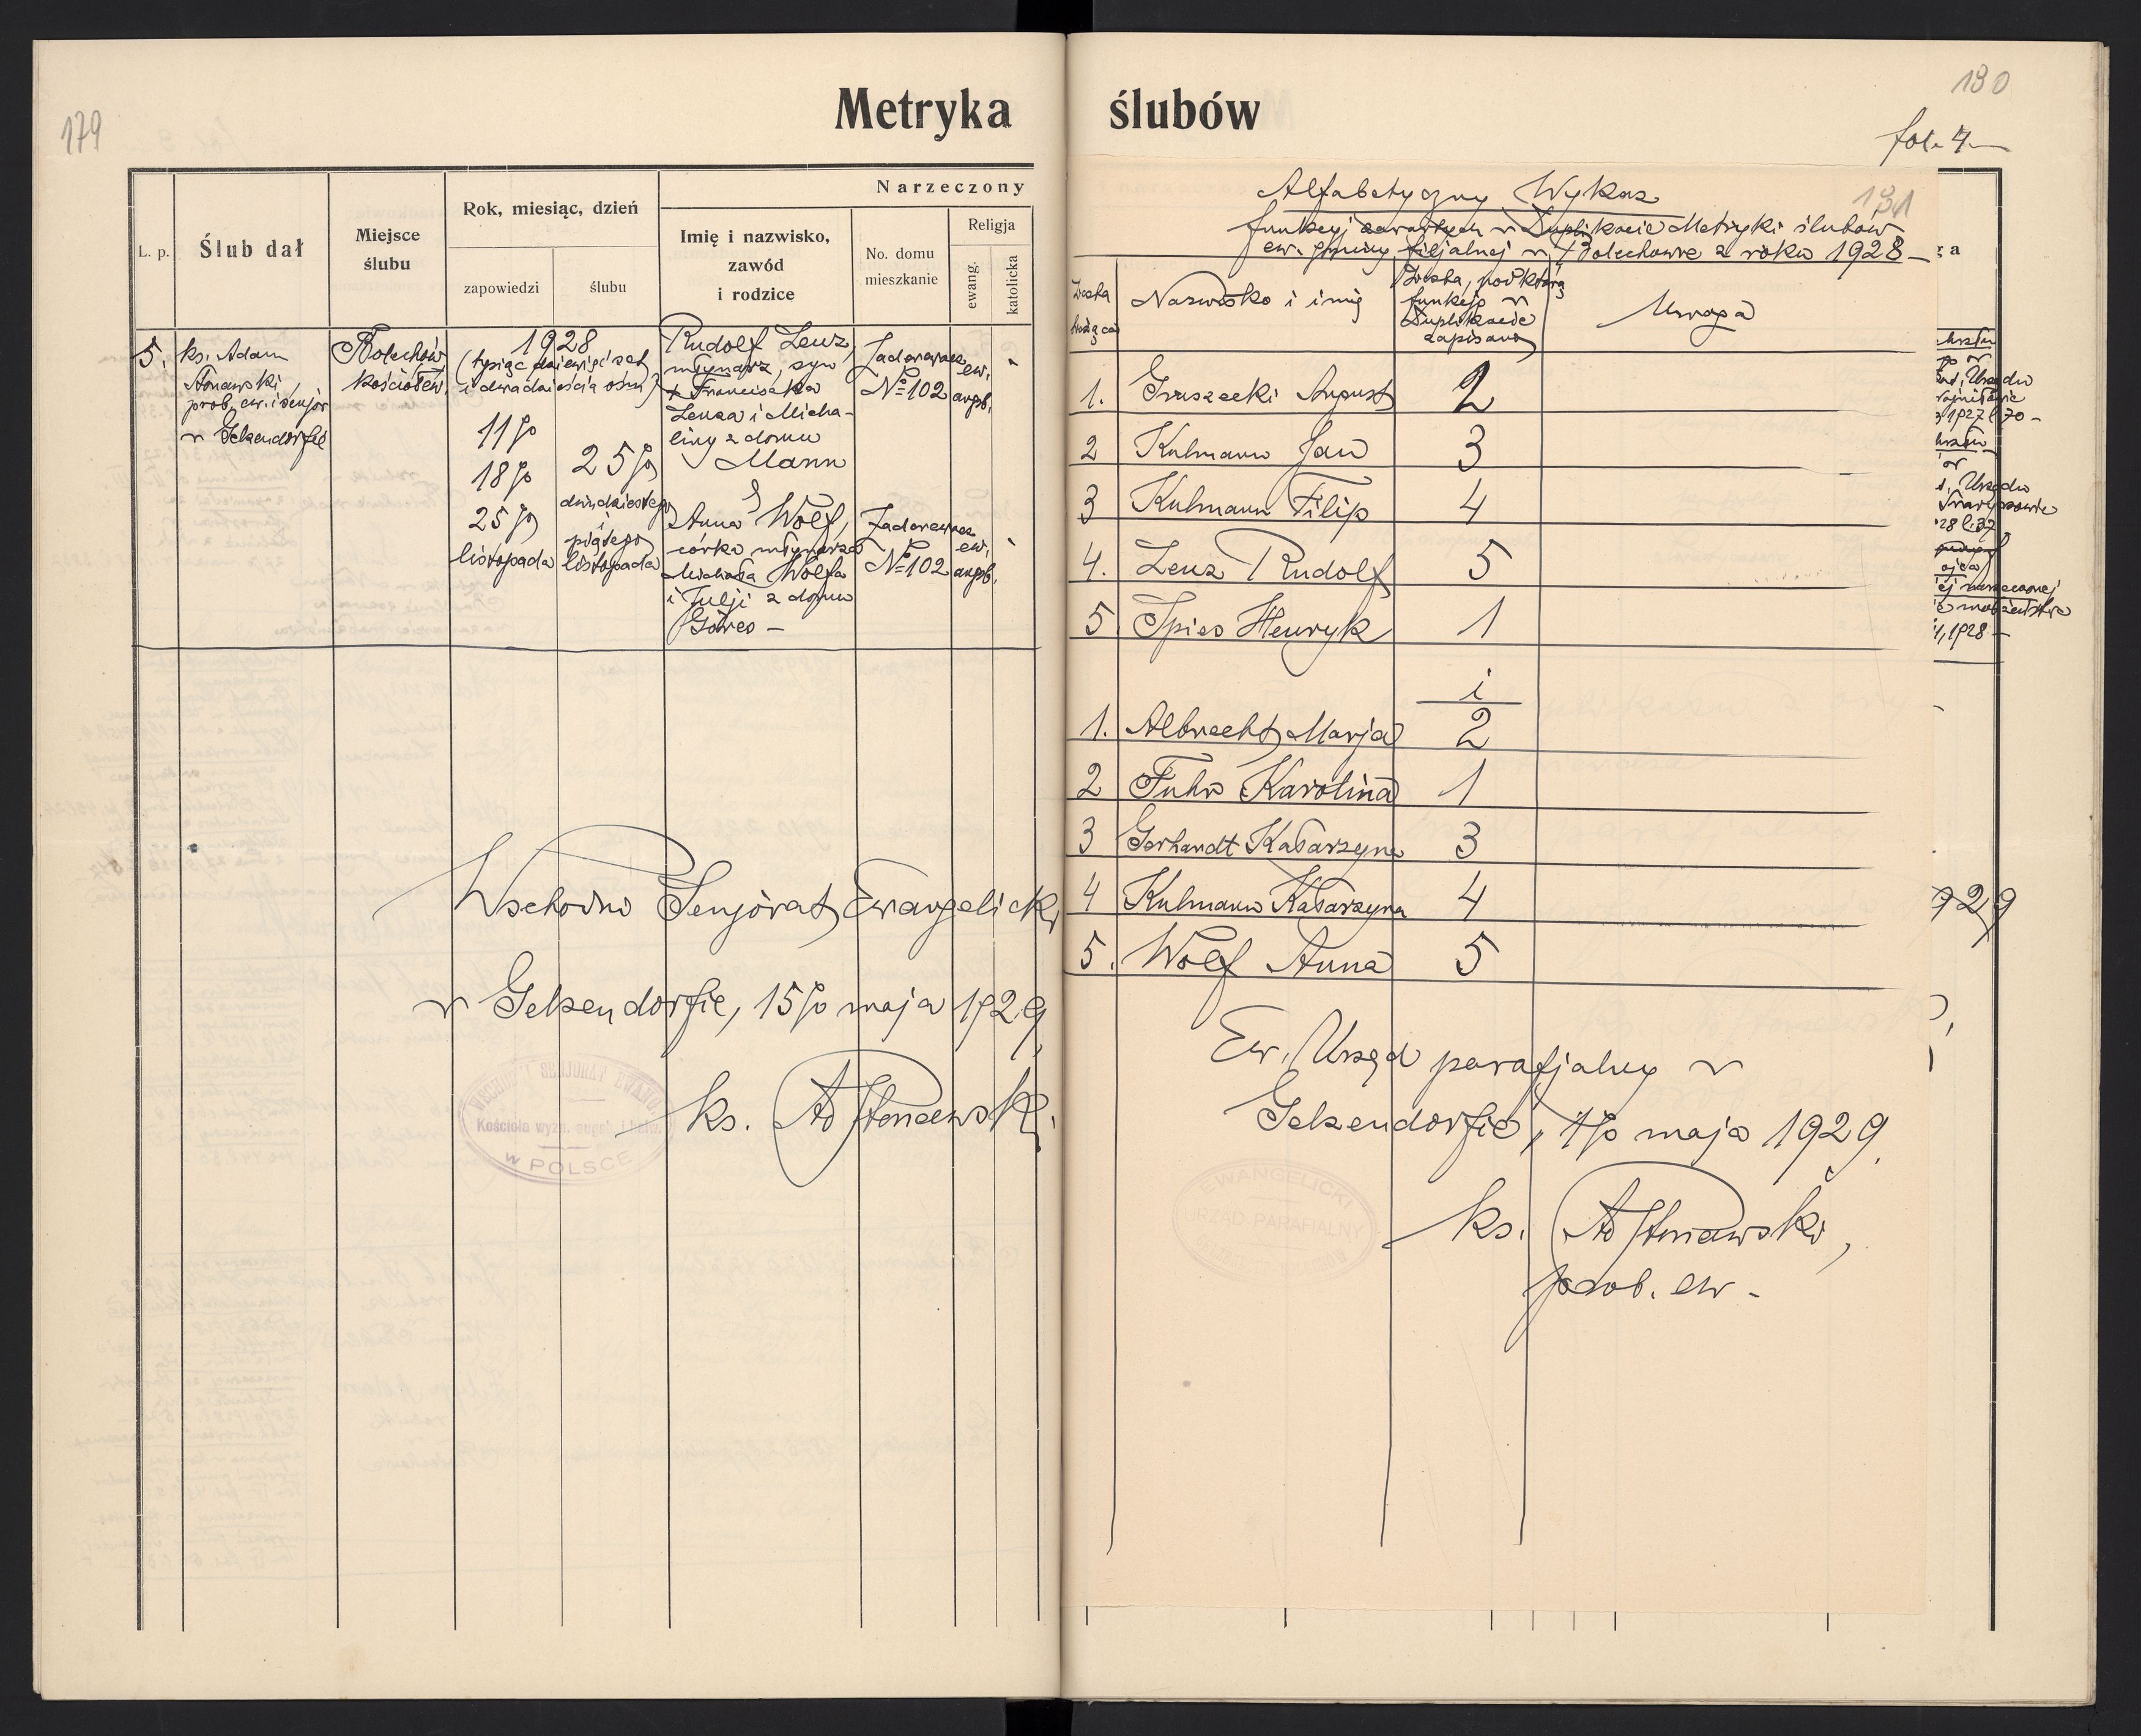 179
Metryka ślubów
180
fol. 4.
L. p.
Ślub dał
Miejsce
ślubu
Rok, miesiąc, dzień
zapowiedzi
ślubu
Narzeczony
Imię i nazwisko,
zawód
i rodzice
No. domu
mieszkanie
Religja
ewang.
katolicka
5.
ks. Adam
Stonawski,
prob. ew. i senjor
w Gelsendorfie
Bolechów
kościół ew.
1928
(tysiąc dziewięćset
i dwadzieścia ośm)
11go
18go
25go
listopada
25go
dwudziestego
piątego
listopada
Rudolf Lenz,
młynarz, syn
+ Franciszka
Lenza i Micha-
liny z domu
Mann
Zaderewacz
No 102
ew.
augsb.
Anna Wolf,
córka młynarza
Michała Wolfa
i Julji z domu
Zaderewacz
No 102
ew.
augsb.
Wschodni Senjorat Ewangelicki
w Gelsendorfie, 15go maja 1929,
ks. Ad Stonawski.
WSCHODNI SENJORAT EWANG.
Kościoła wyzn. augsb. i helw.
w POLSCE
181
Alfabetyczny Wykaz
funkcyj zawartych w Duplikacie Metryki ślubów
ew. gminy filjalnej w Bolechowie z roku 1928 –
Liczba
bieżąca
Nazwisko i imię
Liczba, pod którą
funkcja w
Duplikacie
zapisana
Uwaga
1. Gruszecki August 2
2 Kulmann Jan 3
3 Kulmann Filip 4
4. Lenz Rudolf 5
5. Spies Henryk 1
i
1. Albrecht Marja 2
2 Fuhr Karolina 1
3 Gerhardt Katarzyna 3
4 Kulmann Katarzyna 4
5. Wolf Anna 5
Ew. Urząd parafjalny w
Gelsendorfie, 1go maja 1929,
ks. Ad Stonawski,
prob. ew –
EWANGELICKI
URZĄD PARAFIALNY